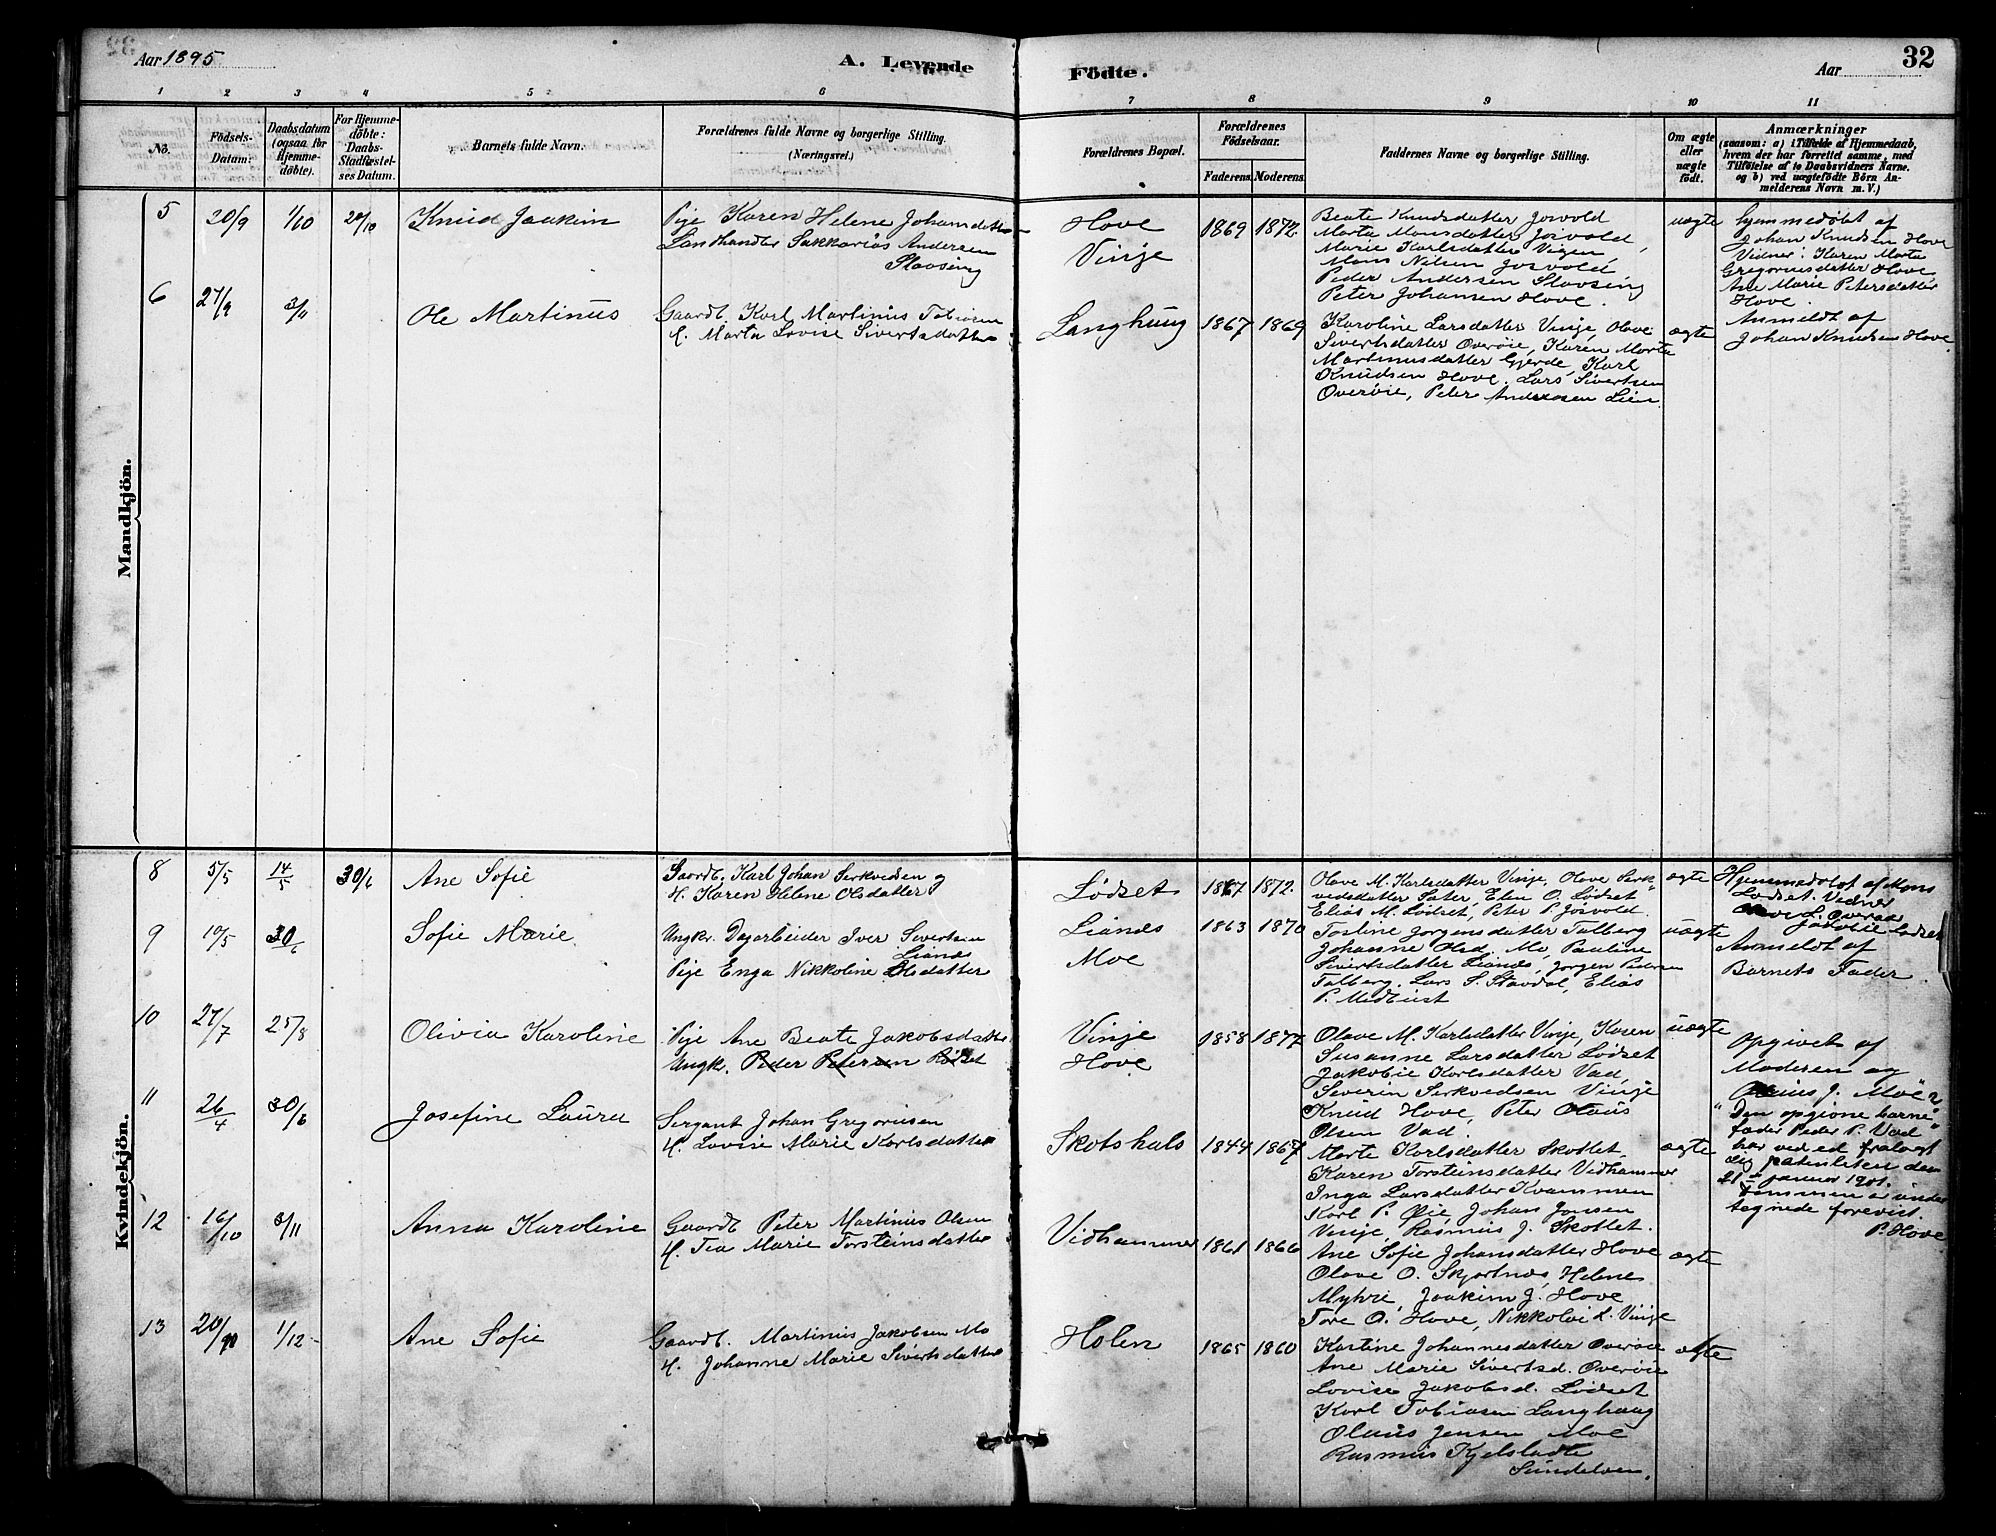 Aar 1895
A. Levende Födte.
Aar
32
1 2 3 4 5 6 7 8 9 10 11
No.
Födsels-Datum.
Daabsdatum (ogsaa for Hjemme-döbte).
For Hjemme-döbte: Daabs-Stadfæstel-ses Datum.
Barnets fulde Navn.
Forældrenes fulde Navne og borgerlige Stilling.
(Næringsvei.)
Forældrenes Bopæl.
Forældrenes Födselsaar.
Faderens. Moderens.
Faddernes Navne og borgerlige Stilling.
Om ægte eller uægte födt.
Anmærkninger
(saasom: a) i Tilfælde af Hjemmedaab, hvem der har forrettet samme, med Tilföielse af to Daabsvidners Navne. og b) ved uægtefödte Börn Anmelderens Navn m. V.)
Mandkjön.
5 20/9 1/10 20/10 Knud Joakim
Pige Karen Helene Johansdatter
Landhandler Sakkarias Andersen
Slaosing
Hove
Vinje
1869 1872.
Beate Knudsdatter Josvold
Marta Monsdatter Josvold,
Marie Karlsdatter Vigen
Mons Nilsen Josvold,
Peder Andersen Slaosing
Peter Johansen Hove.
uægte
hjemmedøbt af
Johan Knudsen Hove
Vidner: Karen Marta
Gregoriusdatter Hove
Ane Marie Petersdatter
Hove.
Anmeldt af
Johan Knudsen Hove.
6 27/9 3/11 Ole Martinus
Gaardb. Karl Martinus Tobiasen
H. Marta Lovise Sivertsdatter
Langhaug 1867 1869
Karoline Larsdatter Vinje, Olave
Sivertsdatter Overøie, Karen Marta
Martinusdatter Gjerde, Karl
Knudsen Hove, Lars Sivertsen
Overøie, Peter Andersen Lien
ægte
Kvindekjön.
8 5/5 14/5 30/6 Ane Sofie
Gaardb. Karl Johan Serkvedsen og
H. Karen Helene Olsdatter
Lødset 1867 1872.
Olave M. Karlsdatter Vinje, Olave Serk-
vedsdatter Sæter, Elen O. Lødset
Elias M. Lødset, Peter P. Josvold.
ægte
Hjemmedøbt af Mons
Lødset. Vidner
9 10/5 30/6 Sofie Marie
Ungkr. Dagarbeider Iver Sivertsen
Lianes
Pige Enga Nikkoline Olsdatter
Lianes
Moe
1863 1870
Tostine Jorgensdatter Talberg
Johanne Olsd. Mo, Pauline
Sivertsdatter Lianes, Jorgen Pedersen
Talberg, Lars S. Stavdal, Elias
P. Midtust
uægte
Anmeldt af
Barnets Fader
10 27/7 25/8 Olivia Karoline
Pige Ane Beate Jakobsdatter
Ungk. Peder Petersen
Vinje
Hove
1858 1877
Olave M. Karlsdatter Vinje, Karen
Susanne Larsdatter Lødset
Jakobie Karlsdatter Vad,
Severin Serkvedsen Vinje
Knud Hove, Peter Olaus
Olsen Vad.
uægte
Opgivet af
Moderen og
J. Moe
"Den opgivne barne"
fader Peder P. Vad
har ved ed fralagt
sig paterniteten den
21 januar 1901.
Dommen er under
tegnede forevist.
P. Hove
11 26/4 30/6 Josefine Laura
Sergant Johan Gregoriusen
H. Lovise Marie Karlsdatter
Skotshals 1844 1867
Marte Karlsdatter Skottet,
Karen Torsteinsdatter Vidhammer
Inga Larsdatter Kvammen
Karl P. Øie, Johan Jonsen
Vinje, Rasmus J. Skottet.
ægte
12 16/10 3/11 Anna Karoline
Gaardb. Peter Martinus Olsen
H. Tea Marie Torsteinsdatter
Vidhammer 1861 1866
Ane Sofie Johansdatter Hove
Olave O. Skjortnes, Helene
Myhre, Joakim J. Hove
Tore O. Hove, Nikkolai L. Vinje
ægte
13 1/12 Ane Sofie
Gaardb. Martinus Jakobsen Mo
H. Johanne Marie Sivertsdatter
Holen 1865 1860
Karline Johannesdatter Overøie
Ane Marie Sivertsd. Overøie
Lovise Jakobsd. Lødset
Karl Tobiasen Langhaug
Olaus Jensen Moe
Rasmus Kjelstadte
Sundelven.
ægte